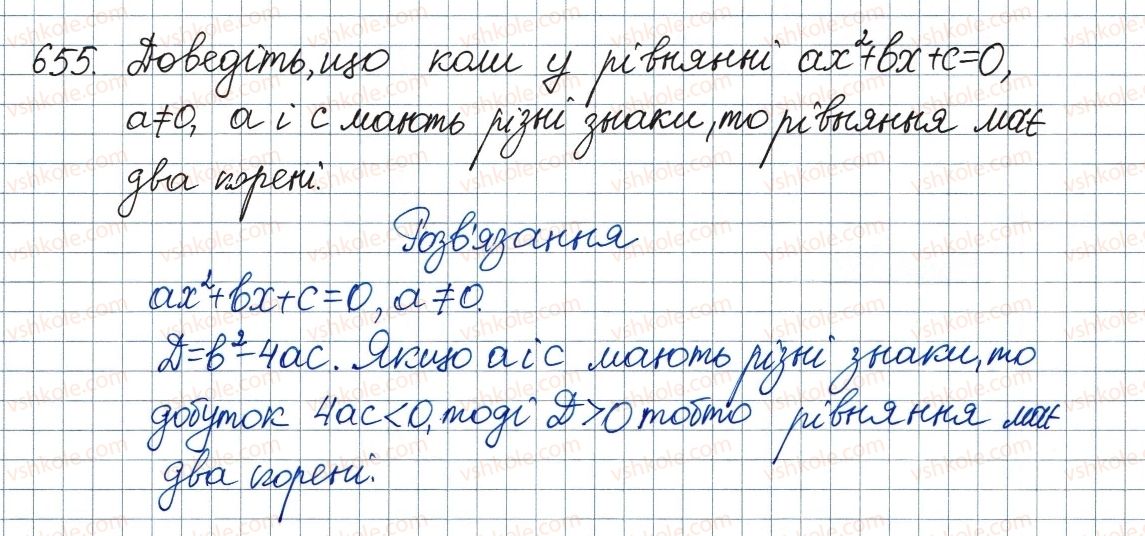 655. Доведіть, що коли у рівнянні ax²+bx+c=0,
a≠0, a і c мають різні знаки, то рівняння має
два корені.
Розв'язання
ax²+bx+c=0, a≠0.
D=b²-4ac. Якщо a і c мають різні знаки, то
добуток 4ac<0, тоді D>0 тобто рівняння має
два корені.